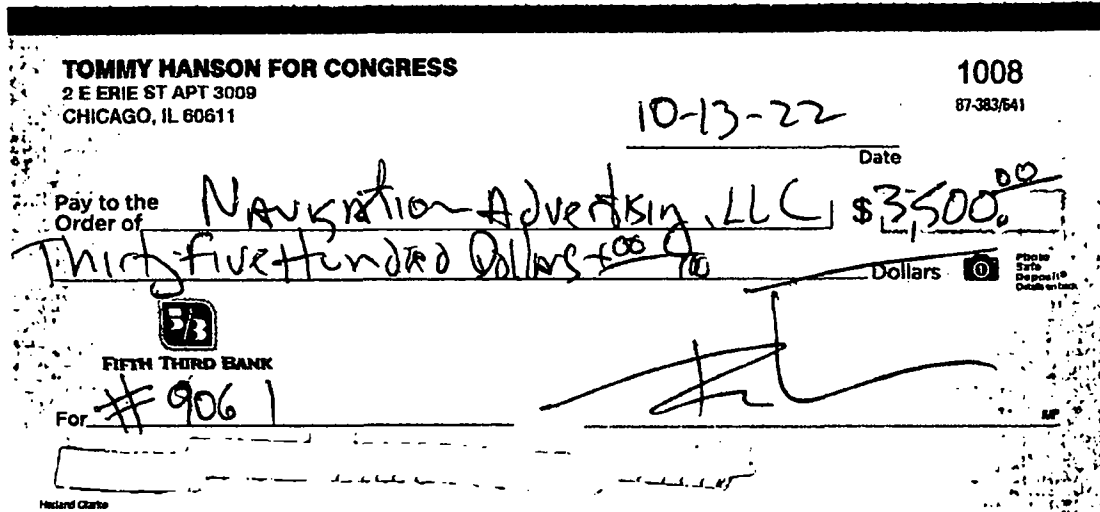 TOMMY HANSON FOR CONGRESS 1008
2 E ERIE ST APT 3009 87-383/641
CHICAGO, IL 60611
10-13-22
Date
Pay to the
Order of Navigation Advertising, LLC $3,500.00
Thirty-five Hundred Dollars + 00/00 Dollars
Photo
Safe
Deposit®
Details on back
5/3
FIFTH THIRD BANK
For #9061
MP
Harland Clarke